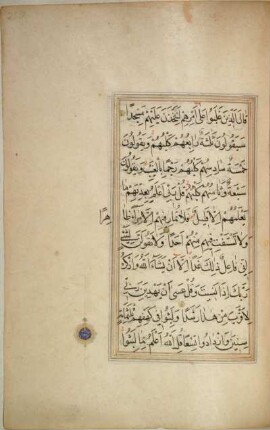 قال الذين غلبوا على امرهم لنتخذن عليهم مسجدا
سيقولون ثلثة رابعهم كلبهم ويقولون
خمسة سادسهم كلبهم رجما بالغيب ويقولون
سبعة وثامنهم كلبهم قل ربي اعلم بعدتهم ما
يعلمهم الا قليل فلا تمار فيهم الا مراء ظا
هرا
ولا تستفت فيهم منهم احدا ولا تقولن لشئ
اني فاعل ذلك غدا الا ان يشاء الله واذكر
ربك اذا نسيت وقل عسى ان يهدين ربي
لاقرب من هذا رشدا ولبثوا في كهفهم ثلثمائة
سنين وازدادوا تسعا قل الله اعلم بما لبثوا